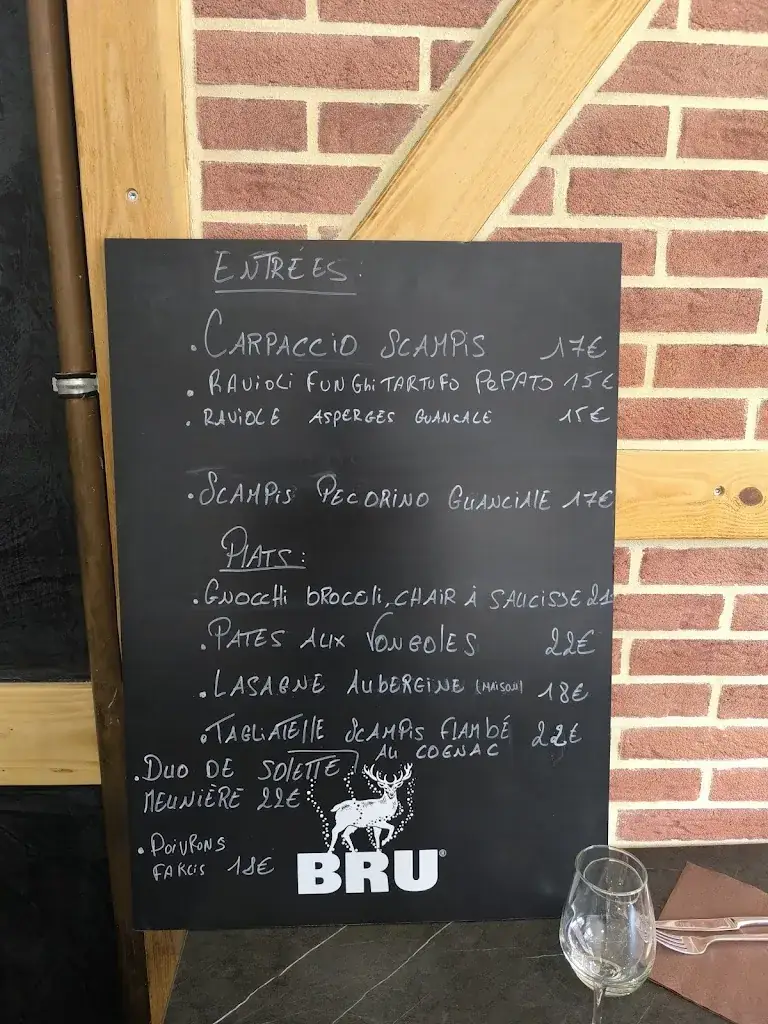 ENTRÉES:
. CARPACCIO SCAMPIS 17€
. RAVIOLI FUNGHI TARTUFO PEPATO 15€
. RAVIOLE ASPERGES GUANCALE 15€
. SCAMPIS PECORINO GUANCIALE 17€
PLATS:
. GNOCCHI BROCOLI, CHAIR À SAUCISSE 21
. PATES AUX VONGOLES 22€
. LASAGNE AUBERGINE (MAISON) 18€
. TAGLIATELLE SCAMPIS FLAMBÉ 22€
AU COGNAC
. DUO DE SOLETTE
MEUNIÈRE 22€
. POIVRONS
FARCIS 18€
BRU®